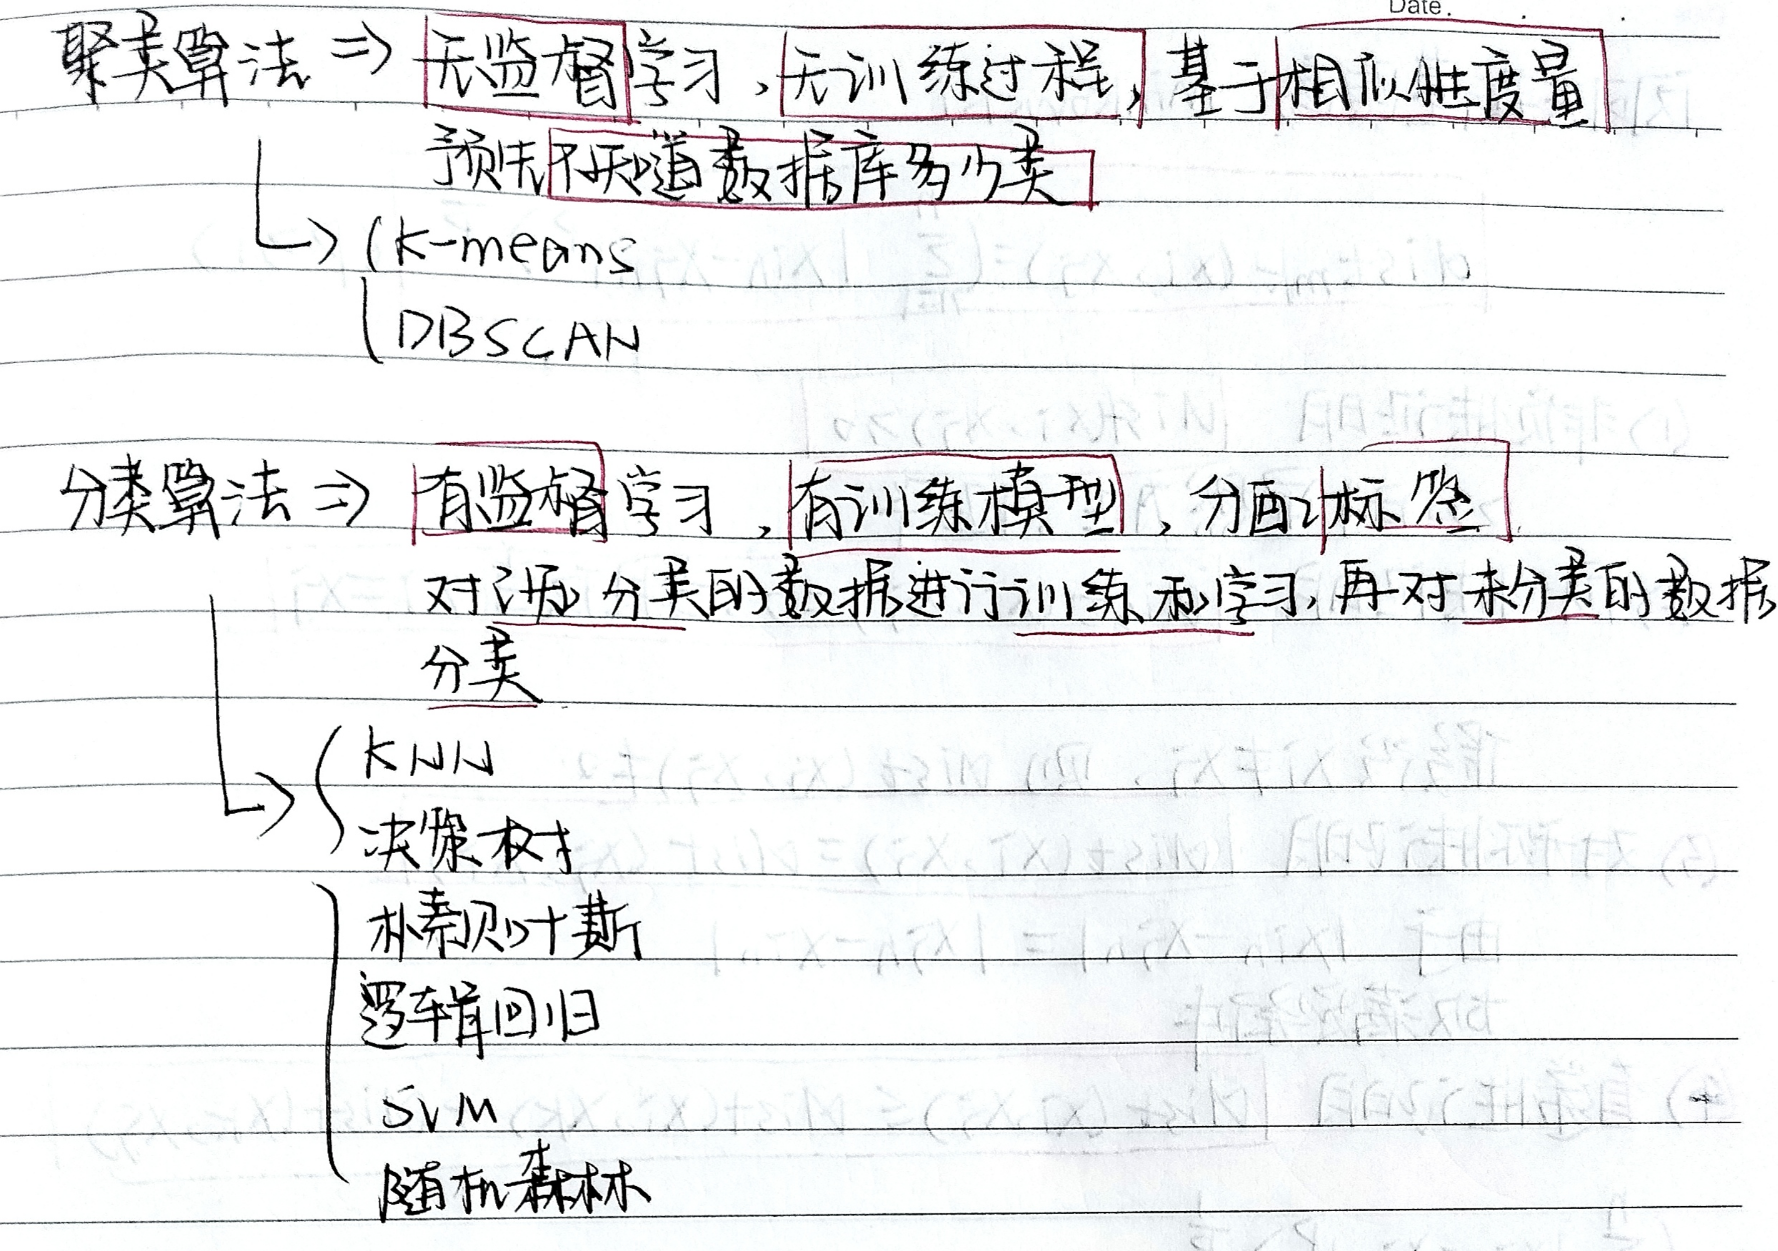 Date.
聚类算法 ⇒ 无监督学习，无训练过程，基于相似性度量
预先不知道数据库多少类
K-means
DBSCAN
分类算法 ⇒ 有监督学习，有训练模型，分配标签
对 分类的数据进行训练和学习，再对未分类的数据
分类
KNN
决策树
朴素贝叶斯
逻辑回归
SVM
随机森林